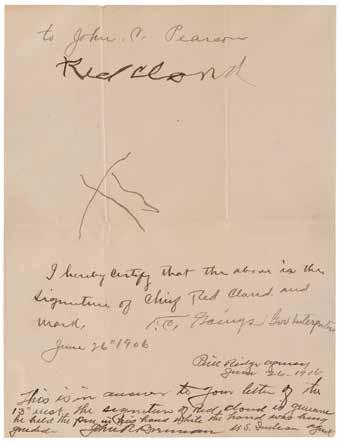 to John. C. Pearson
Red Cloud
I hereby certify that the above is the
signature of Chief Red Cloud. and
mark.
Gov Interpreter
June 26th 1906
Pine Ridge agency
June 26. 1906
This is in answer to your letter of the
13th inst. the signature of Red Cloud is genuine
he held the pen in his hand while the hand was being
guided. John R Brennan U.S. Indian Agent